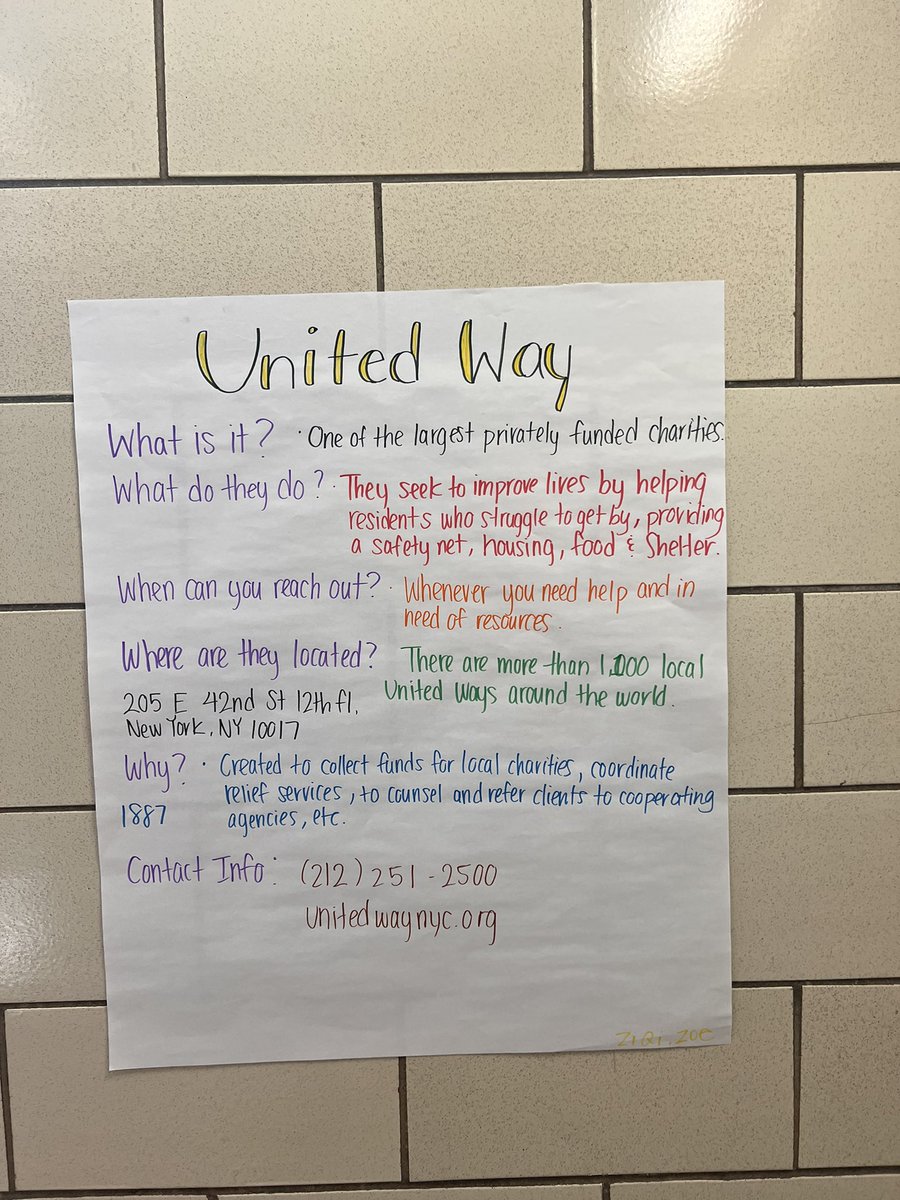 United Way
What is it? · One of the largest privately funded charities.
What do they do? · They seek to improve lives by helping
residents who struggle to get by, providing
a safety net, housing, food & Shelter.
When can you reach out? · Whenever you need help and in
need of resources.
Where are they located? There are more than 1,000 local
United Ways around the world.
205 E 42nd St 12th fl,
New York, NY 10017
Why? · Created to collect funds for local charities, coordinate
relief services, to counsel and refer clients to cooperating
agencies, etc.
1887
Contact Info: (212) 251-2500
Unitedwaynyc.org
ZiQi, Zoe